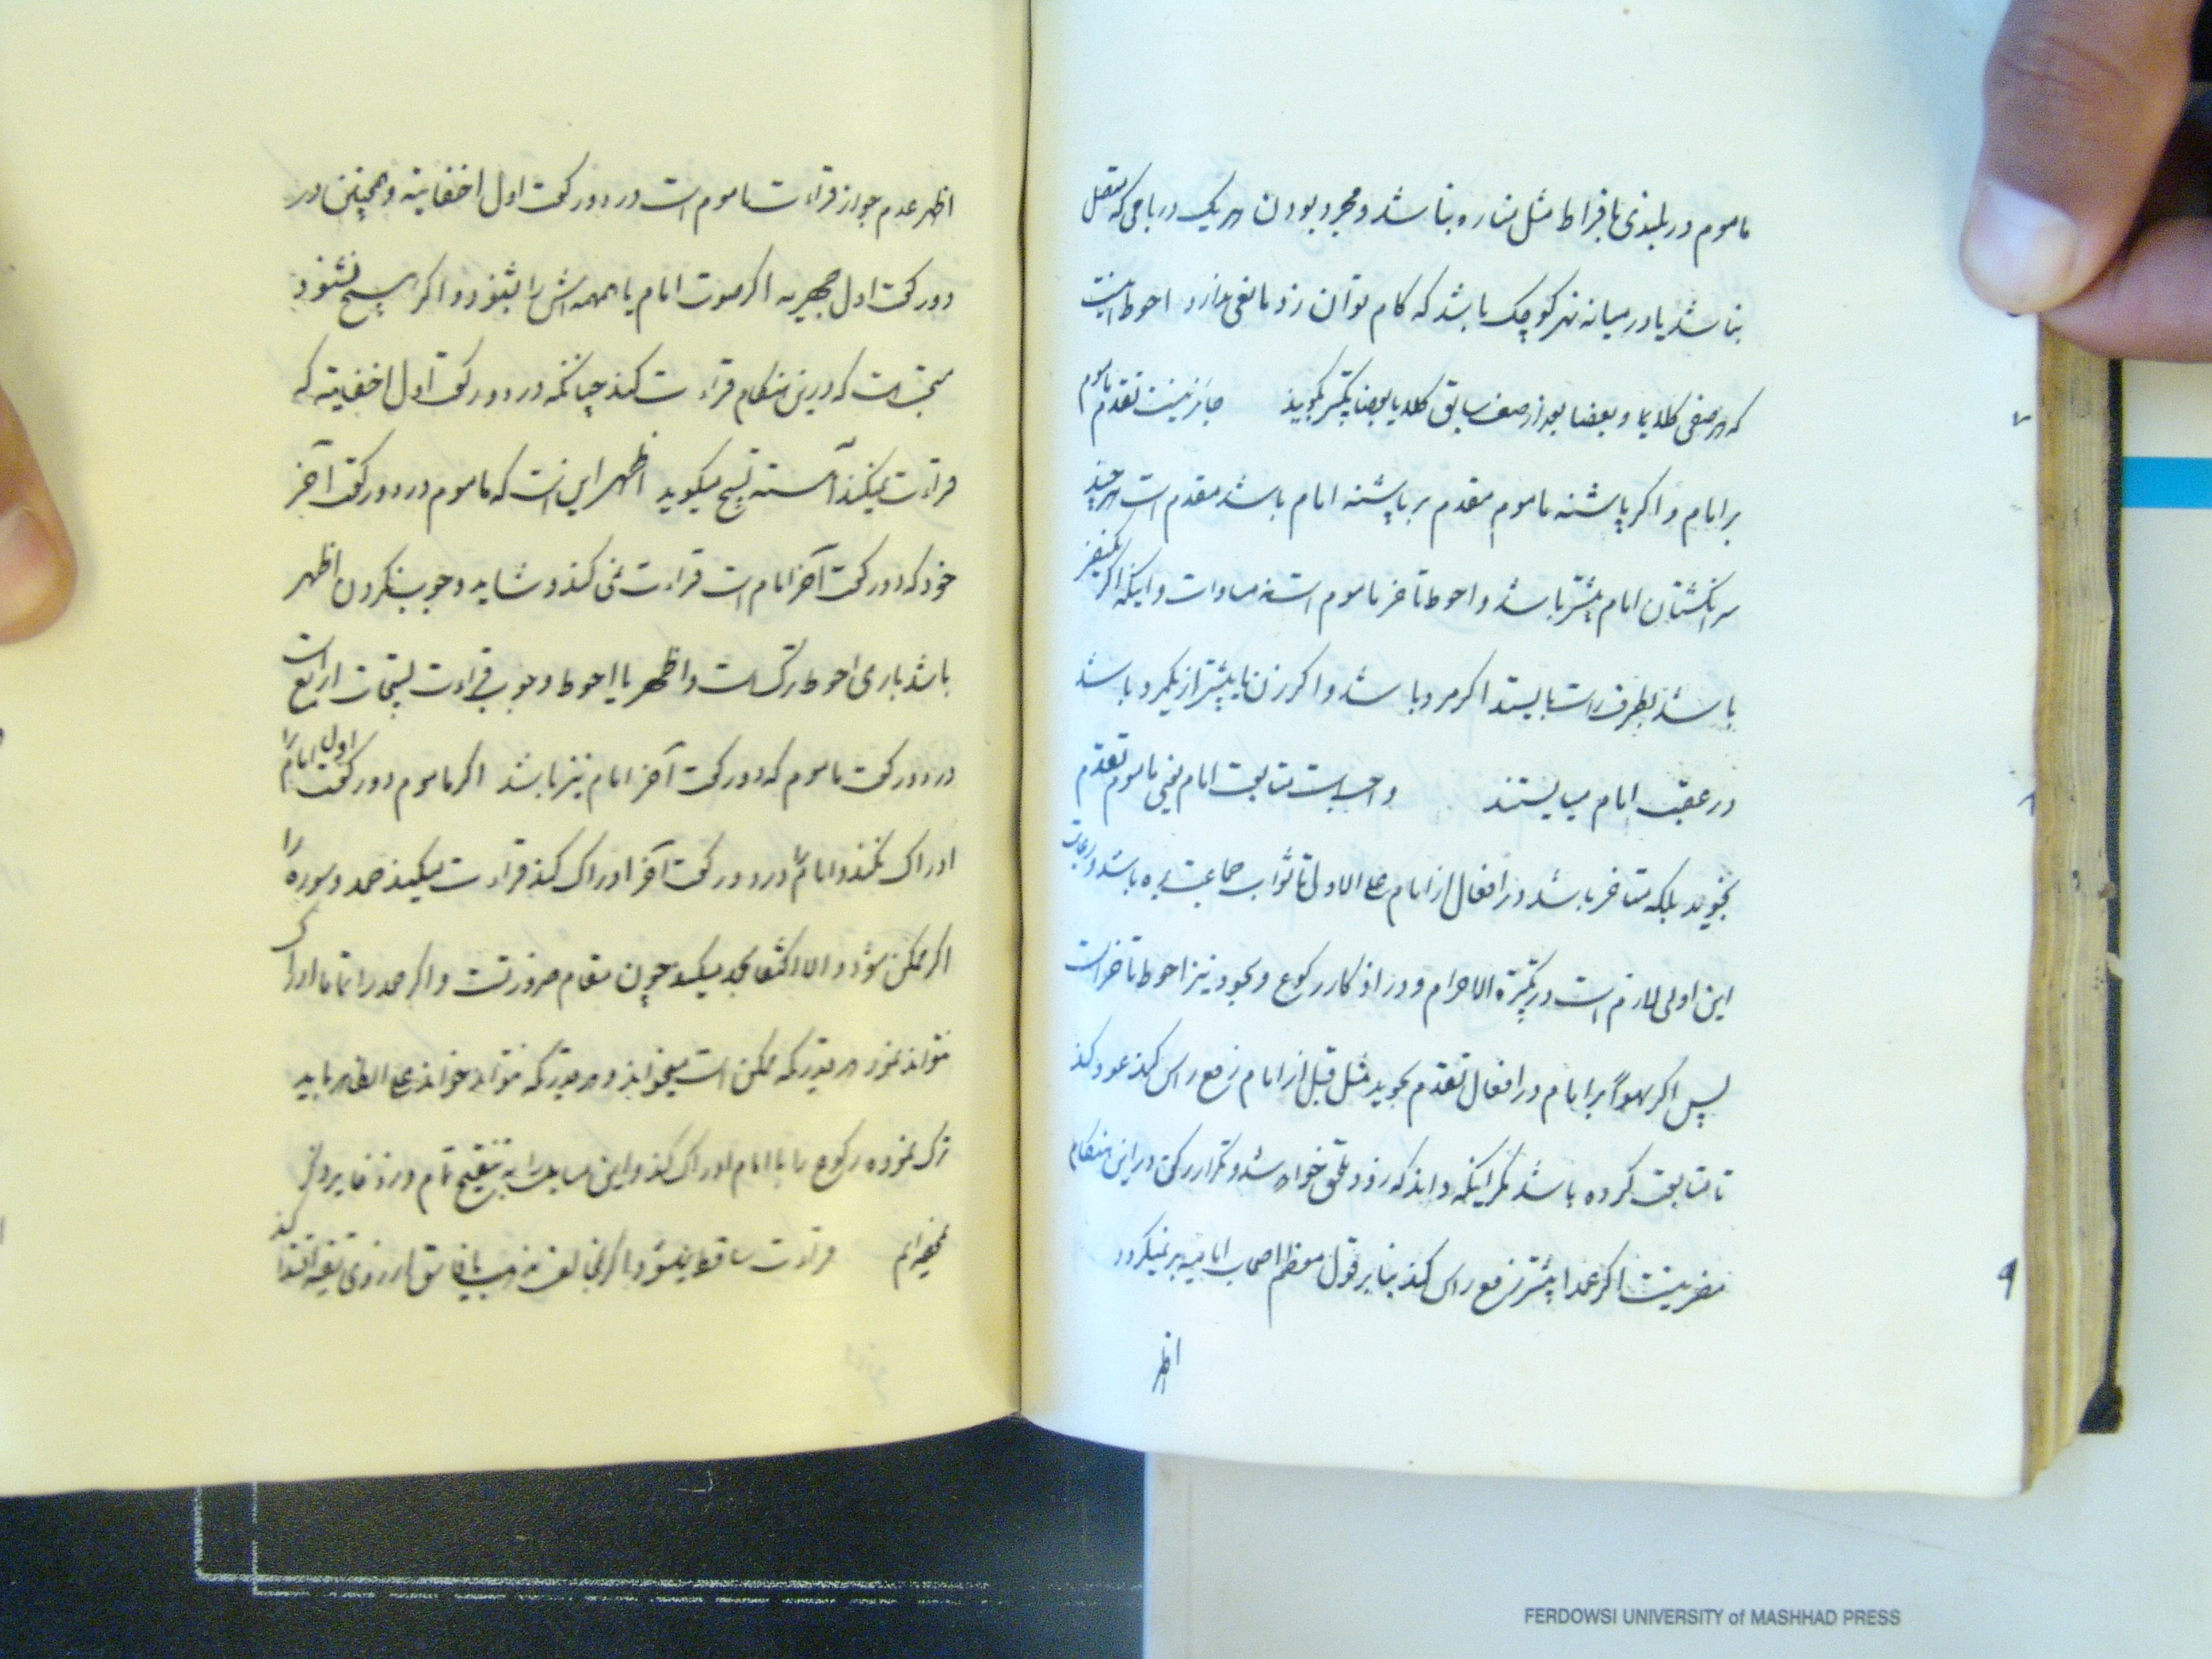 ماموم در بلندی بافراط مثل مناره نباشد و مجرد بودن هر یک در بامی که متصل
نباشد یا در میانه نهر کوچک باشد که کام توان زد مانعی ندارد احوط اینست
که هر صفی کلا یا و بعضا بعد از صف سابق کلا یا بعضا تکبیر بگویند جایز نیست تقدم ماموم
۷
بر امام و اگر پاشنه ماموم مقدم بر پاشنه امام باشد مقدم است هر چند
سر انگشتان امام پیشتر باشد و احوط تاخر ماموم است نه مساوات و اینکه اگر یکنفر
باشد بطرف راست بایستد اگر مرد باشد و اگر زن یا بیشتر از یکمرد باشد
در عقب امام می‌ایستند واجب است متابعت امام یعنی ماموم تقدم
۸
نجوید بلکه متاخر باشد در افعال از امام علی الاولی تا ثواب جماعت برده باشد و مراعات
این اولی لازم است در تکبیرة الاحرام و در اذکار رکوع و سجود نیز احوط تاخر است
پس اگر سهواً بر امام در افعال تقدم بجوید مثل قبل از امام رفع راس کند عود کند
تا متابعت کرده باشد مگر اینکه داند که زود ملحق خواهد شد و تکرار رکن در این هنگام
مضر نیست اگر عمدا پیشتر رفع راس کند بنابر قول معظم اصحاب امامیه بر نمیگردد
۹
اظهر
اظهر عدم جواز قراءت ماموم است در دو رکعت اول اخفاتیه و همچنین در
دو رکعت اول جهریه اگر صوت امام یا همهمه‌اش را بشنود و اگر هیچ نشنود
مستحب است که در این هنگام قراءت کند چنانکه در دو رکعت اول اخفاتیه که
قراءت نمیکند آهسته تسبیح میگوید اظهر این است که ماموم در دو رکعت آخر
خود که دو رکعت آخر امام است قراءت نمی کند و شاید وجوب نکردن اظهر
باشد باری احوط ترک است و اظهر یا احوط وجوب قراءت تسبیحات اربع است
در دو رکعت ماموم که دو رکعت آخر امام نیز باشد اگر ماموم دو رکعت اول امام را
ادراک نکند و امام را در دو رکعت آخر ادراک کند قراءت میکند حمد و سوره را
اگر ممکن شود و الا اکتفا بحمد میکند چون مقام ضرورتست و اگر حمد را تماما ادراک
نتواند نمود هر قدر که ممکن است میخواند و هر قدر که نتواند خواند علی الظاهر باید
ترک نموده رکوع را با امام ادراک کند و این مسایل را به تنقیح تمام در
قراءت ساقط نمیشود اگر بمخالف مذهب یا فاسق از روی تقیه اقتدا کند